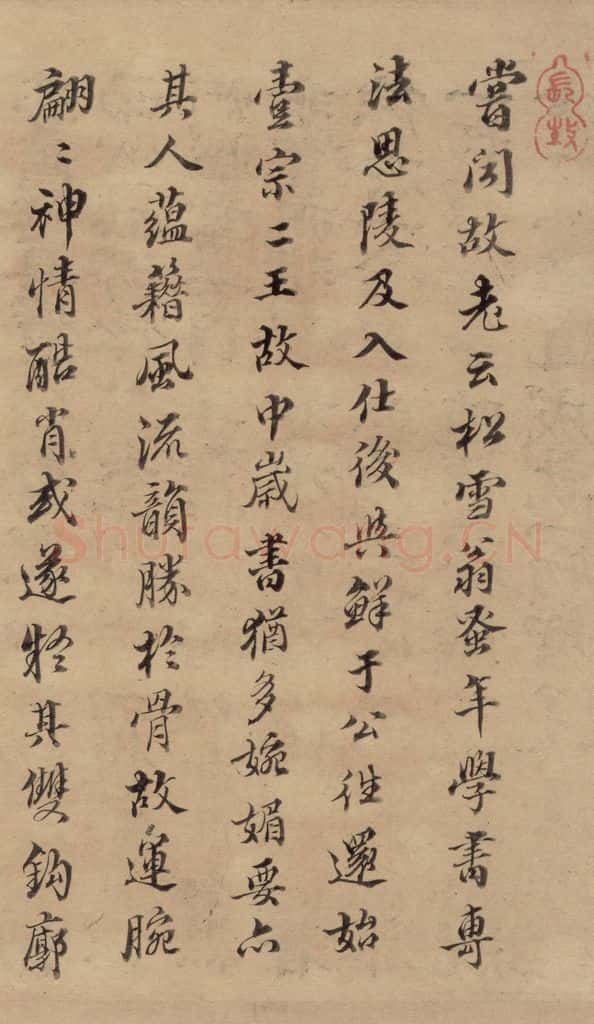 嘗聞故老云松雪翁蚤年學書專
法思陵及入仕後與鮮于公往還始
壹宗二王故中歲書猶多婉媚要亦
其人蘊藉風流韻勝於骨故運腕
翩〻神情酷肖或遂疑其雙鈎廓
Shufawang.CN